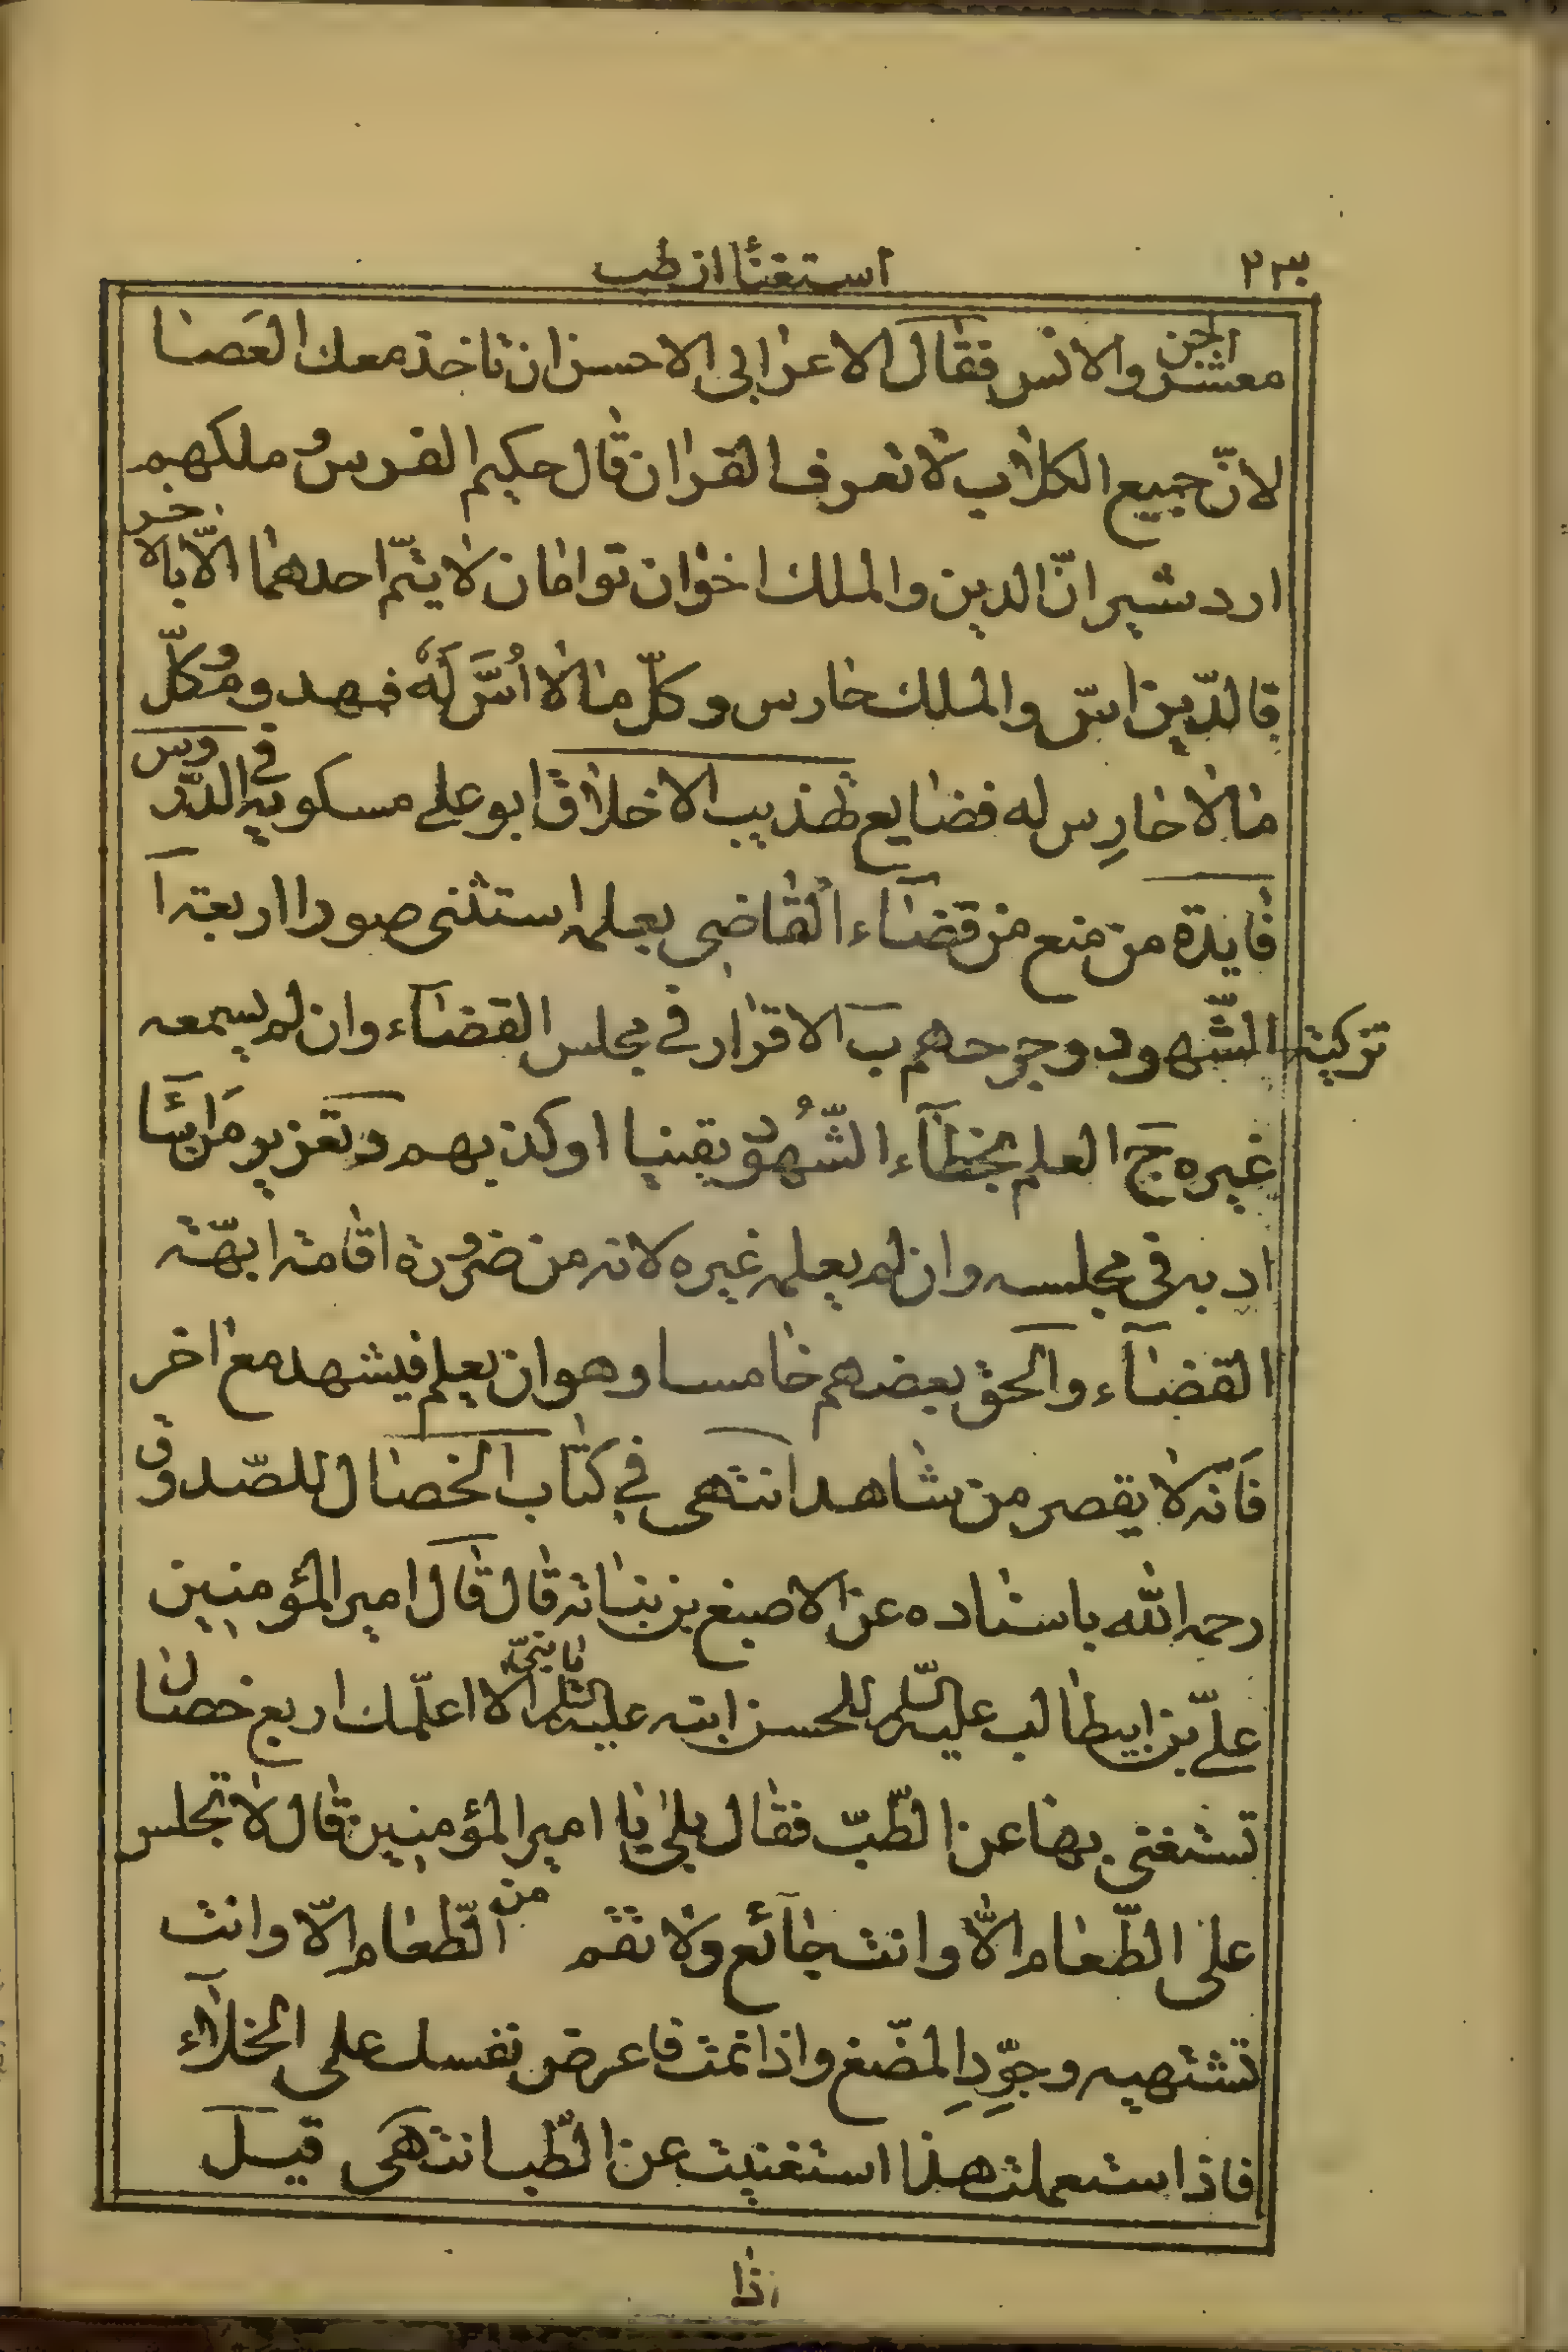 ۲۳۳
استغنٔا از طب
معشر الجن والانس فقال الاعرابی الاحسن ان تاخذ معك العصا
لانّ جمیع الکلاب لا تعرف القران قال حکیم الفرس وملکهم
اردشیر انّ الدین والملك اخوان توامان لا یتمّ احدهما الّا بالاخر
فالدّین اسّ والملك حارس وکلّ ما لا اُسَّ لَهُ فمهدوم وکلّ
ما لا حارِس له فضایع تهذیب الاخلاق ابو علی مسکویه فی الدّروس
فایدة من منع من قضاء القاضی بعلمه استثنی صورا اربعة آ
تزکیة الشّهود وجرحهم ب الاقرار فی مجلس القضاء وان لم یسمعه
غیره ج العلم بخطآء الشّهُود یقینا او کذبهم د تعزیر من اسآء
ادبه فی مجلسه وان لم یعلمه غیره لانه من ضرورة اقامة ابهّة
القضآء والحق بعضهم خامسا وهو ان یعلم فیشهد مع اخر
فانّه لا یقصر من شاهد انتهی فی کتاب الخصال للصّدوق
رحمه الله باسناده عن الاصبغ بن نباتة قال قال امیر المؤمنین
علیّ بن ابیطالب علیه السّلم للحسن ابنه علیه السّلم یا بنیّ الا اعلّمك اربع خصال
تستغنی بها عن الطّبّ فقال بلی یا امیر المؤمنین قال لا تجلس
علی الطّعام الّا وانت جآئع ولا تقم من الطّعام الّا وانت
تشتهیه وجوِّدِ المضّغ واذا نمت فاعرض نفسك علی الخلآء
فاذا استعملت هذا استغنیت عن الطّب انتهی قیل
اذا